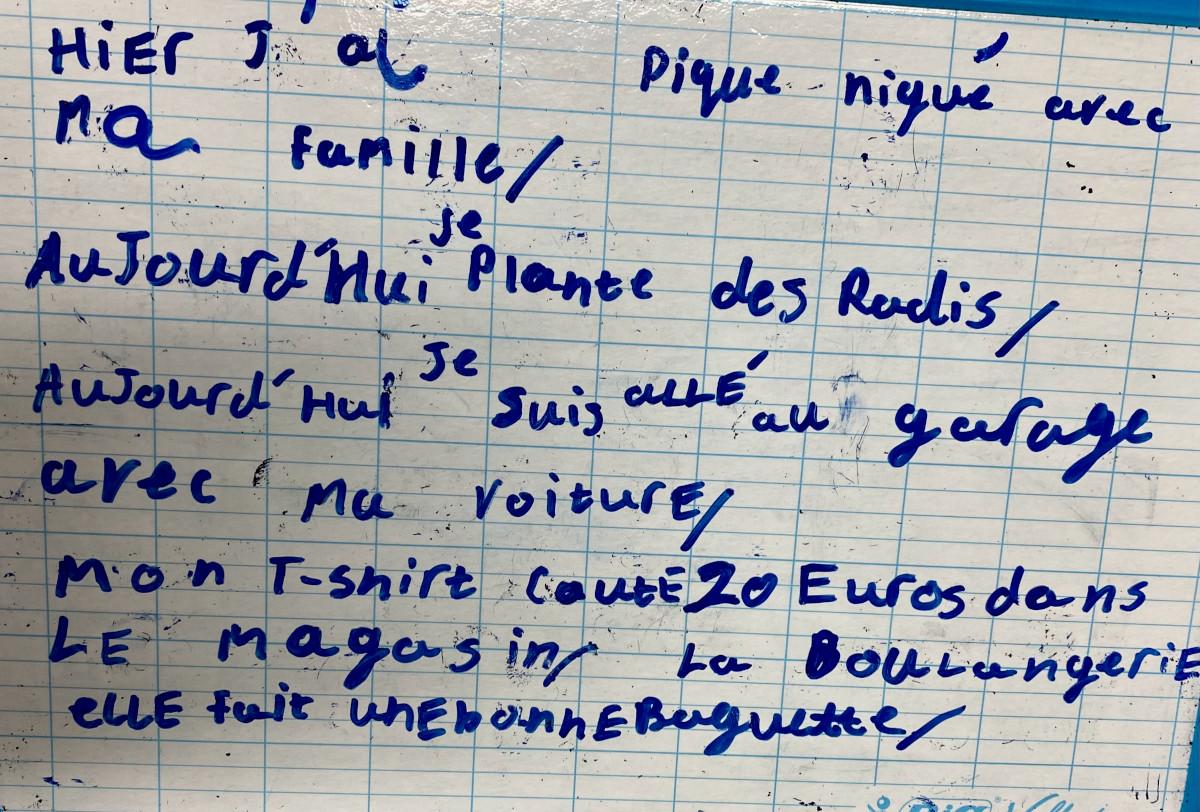 HiEr J'ai Pique niqué avec
Ma famille/
je
AuJourd'Hui Plante des Radis/
je
AuJourd'Hui suis aLLÉ au garage
avec Ma voiturE/
Mon T-shirt CoutE 20 Euros dans
LE Magasin/ La BouLangeriE
eLLE fait unE bonnE Baguette/